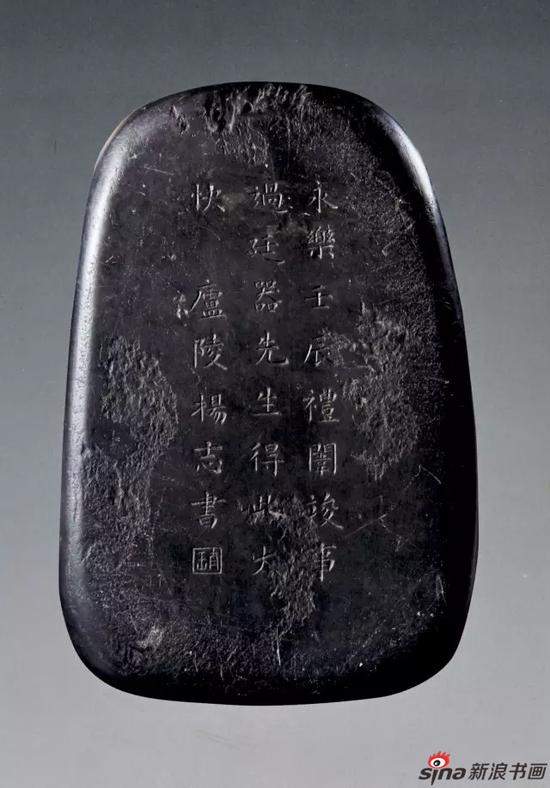 永樂壬辰禮闈竣事
過廷器先生得此大
快 廬陵楊志書
sina新浪书画